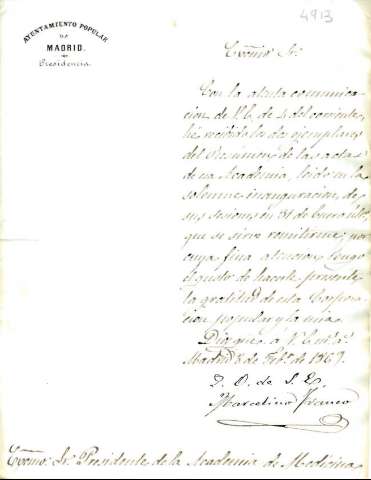 4913
AYUNTAMIENTO POPULAR
DE
MADRID.
Presidencia
Excmo. Sr.
Con la atenta comunica-
cion de V. E. de 4 del corriente,
he recibido los dos ejemplares
del Resumen de las actas
de esa Academia, leido en la
solemne inauguracion, de
sus sesiones en 31 de Enero ulto.
que se sirve remitirme; por
cuya fina atencion tengo
el gusto de hacerle presente
la gratitud de esta Corpora-
cion popular y la mia.
Dios gue. á V. E. ms. as.
Madrid 8 de Febo. de 1869.
P. O. de S. E.
Marcelino Franco
Excmo. Sr. Presidente de la Academia de Medicina